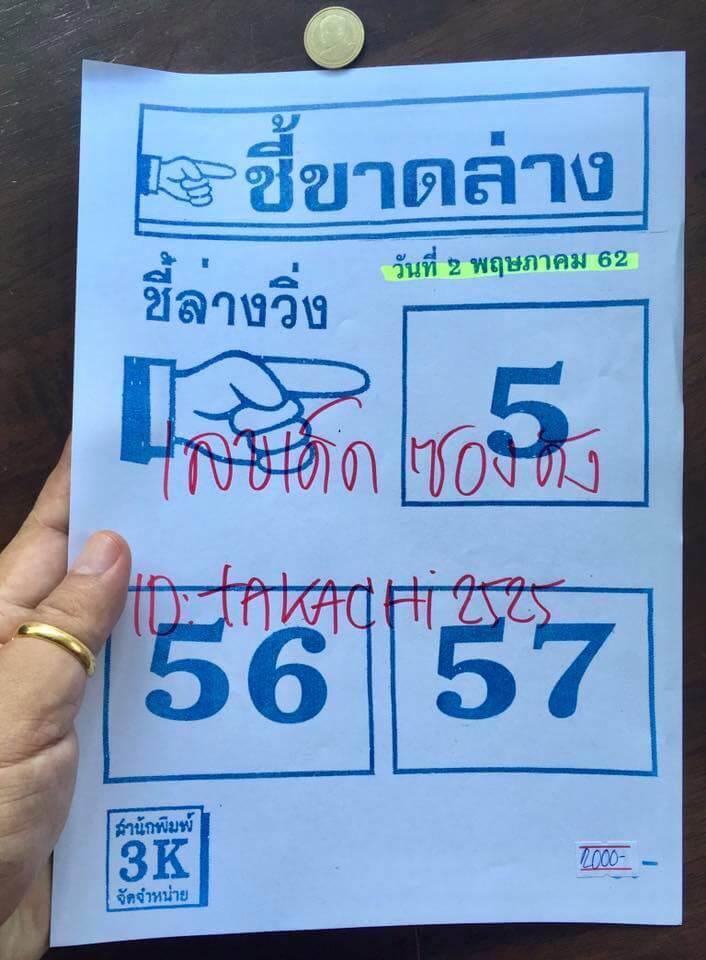 ชี้ขาดล่าง
วันที่ 2 พฤษภาคม 62
ชี้ล่างวิ่ง
5
เลขเด็ด ซองดัง
ID: tAKACHi 2525
56 57
สำนักพิมพ์
3K
จัดจำหน่าย
2000-